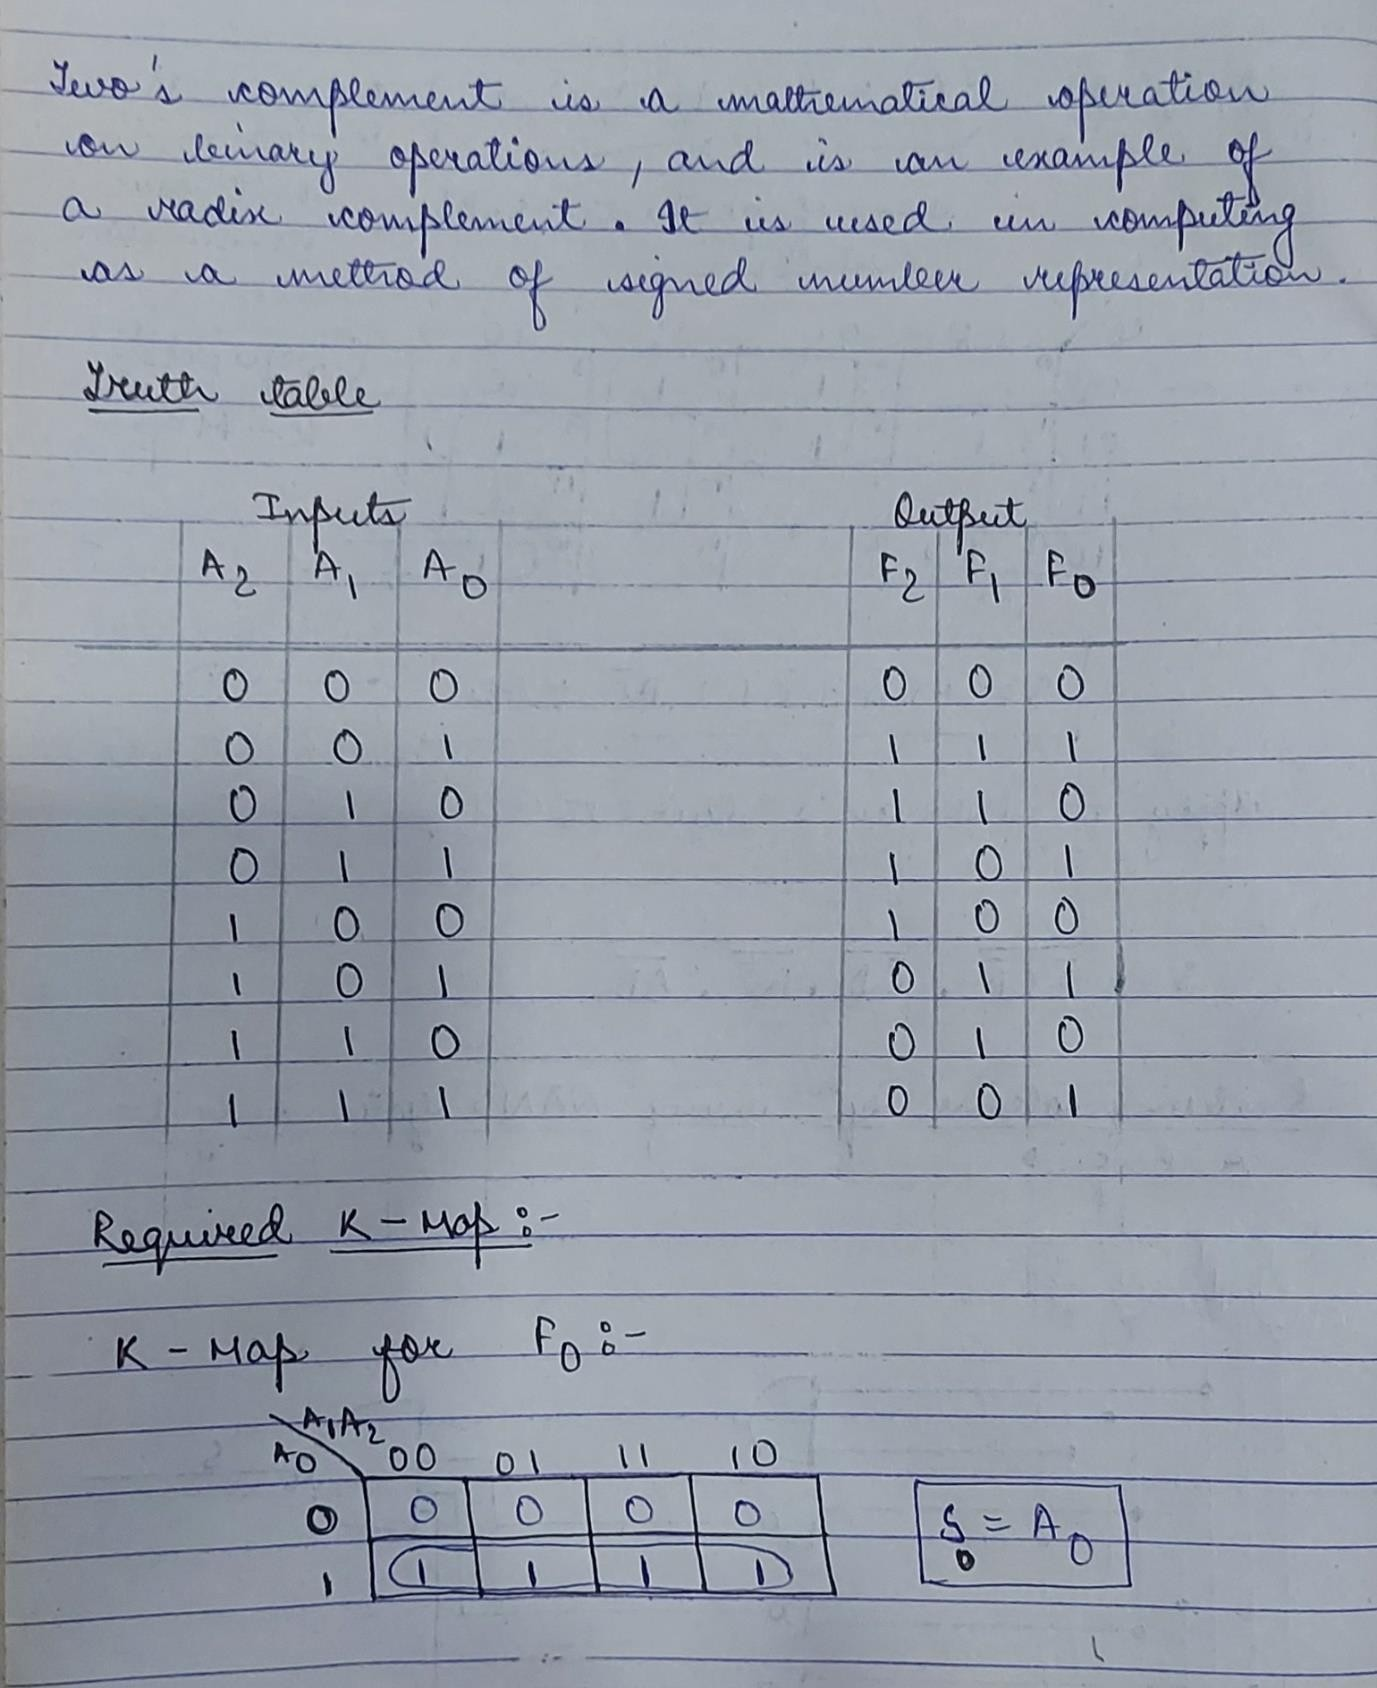 Two's complement is a mathematical operation
on binary operations, and is an example of
a radix complement. It is used in computing
as a method of signed number representation.
Truth table
Inputs Output
A2 A1 A0 F2 F1 F0
0 0 0 0 0 0
0 0 1 1 1 1
0 1 0 1 1 0
0 1 1 1 0 1
1 0 0 1 0 0
1 0 1 0 1 1
1 1 0 0 1 0
1 1 1 0 0 1
Required K-Map :-
K-Map for F0 :-
A1A2
A0 00 01 11 10
0 0 0 0 0
1 1 1 1 1
S0 = A0